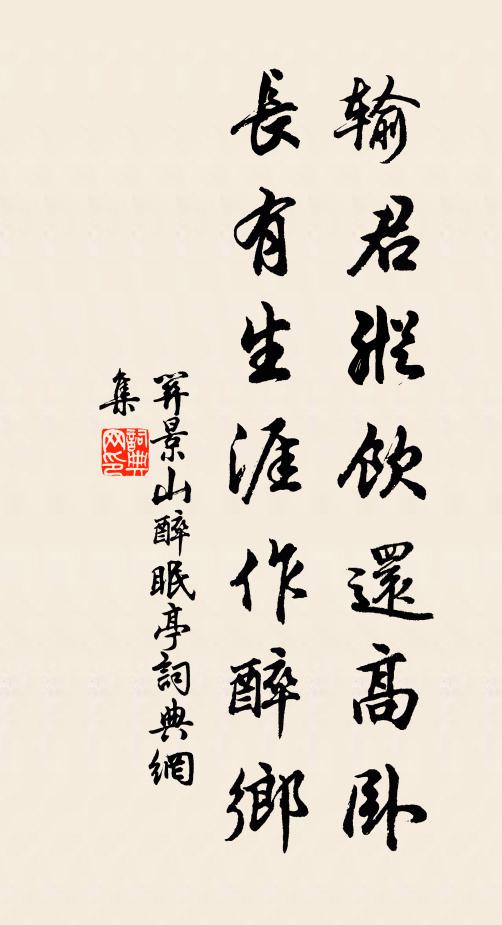 輸君縱飲還高卧
長有生涯作醉鄉
羿景山醉眠亭詞典網
集
詞典
网印